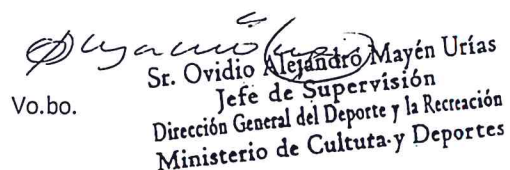 Sr. Ovidio Alejandro Mayén Urías
Vo.bo.
Jefe de Supervisión
Dirección General del Deporte y la Recreación
Ministerio de Cultuta y Deportes